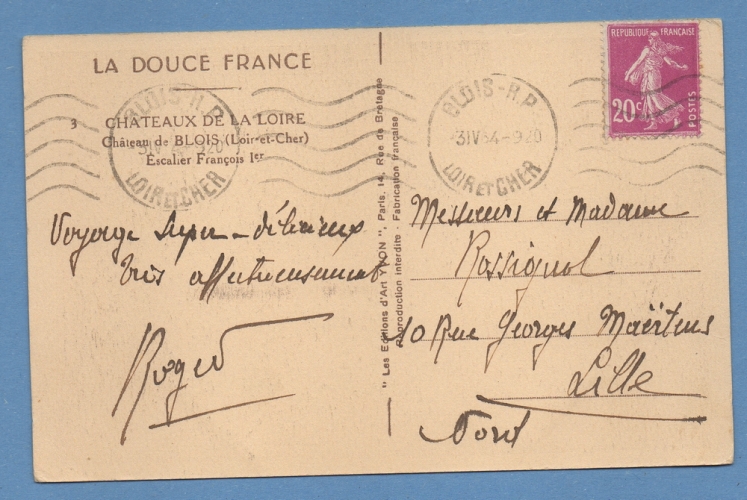 LA DOUCE FRANCE
3 CHATEAUX DE LA LOIRE
Château de BLOIS (Loir-et-Cher)
Escalier François 1er
BLOIS - R.P.
3 IV 34 - 920
LOIR ET CHER
BLOIS - R.P.
3 IV 34 - 920
LOIR ET CHER
REPUBLIQUE FRANÇAISE
20c
POSTES
Voyage super-délicieux
très affectueusement
Roger
" Les Editions d'Art YVON ", Paris, 14, Rue de Bretagne
Reproduction interdite - Fabrication française
Messieurs et Madame
Rossignol
10 Rue Georges Maërtens
Lille
Nord